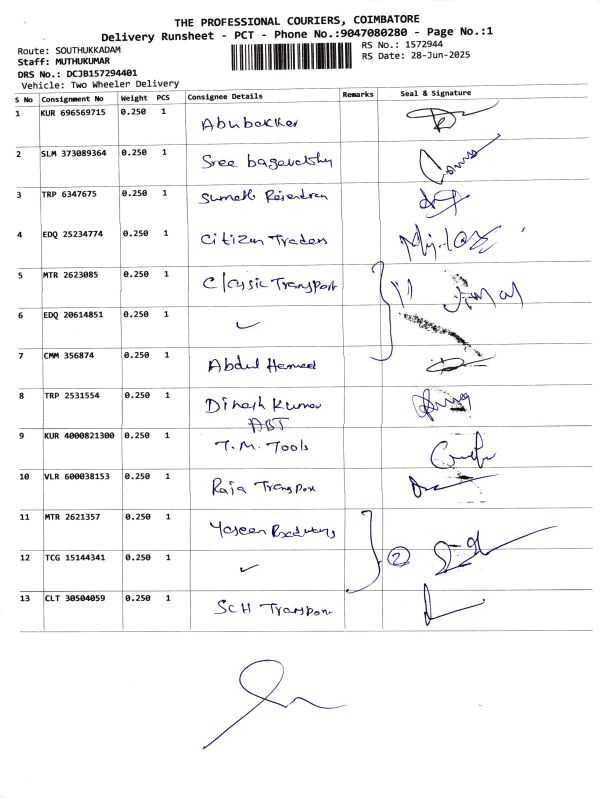 THE PROFESSIONAL COURIERS, COIMBATORE
Delivery Runsheet - PCT - Phone No.:9047080280 - Page No.:1
Route: SOUTHUKKADAM
RS No.: 1572944
Staff: MUTHUKUMAR
RS Date: 28-Jun-2025
DRS No.: DCJB157294401
Vehicle: Two Wheeler Delivery
S No Consignment No Weight PCS Consignee Details Remarks Seal & Signature
1 KUR 696569715 0.250 1 Abubakker
2 SLM 373089364 0.250 1 Sree
3 TRP 6347675 0.250 1
4 EDQ 25234774 0.250 1 Citizen Traders
5 MTR 2623085 0.250 1 Classic Transport
6 EDQ 20614851 0.250 1 ✓
7 CMM 356874 0.250 1 Abdul Hameed
8 TRP 2531554 0.250 1 Dinesh Kumar
ABT
9 KUR 4000821300 0.250 1 T.M. Tools
10 VLR 600038153 0.250 1 Raja Transport
11 MTR 2621357 0.250 1 Yaseen Roadways
12 TCG 15144341 0.250 1 ✓ 2
13 CLT 30504059 0.250 1 SCH Transport